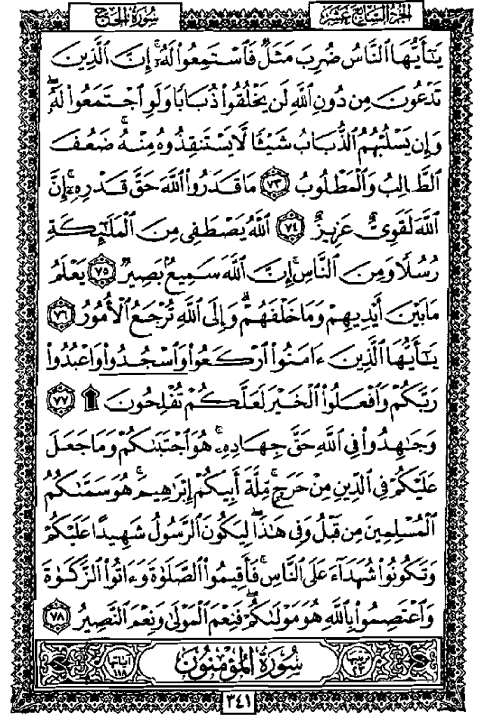 سورة الحج
الجزء السابع عشر
يَٰٓأَيُّهَا ٱلنَّاسُ ضُرِبَ مَثَلٌ فَٱسْتَمِعُوا۟ لَهُۥٓ ۚ إِنَّ ٱلَّذِينَ
تَدْعُونَ مِن دُونِ ٱللَّهِ لَن يَخْلُقُوا۟ ذُبَابًا وَلَوِ ٱجْتَمَعُوا۟ لَهُۥ ۖ
وَإِن يَسْلُبْهُمُ ٱلذُّبَابُ شَيْـًٔا لَّا يَسْتَنقِذُوهُ مِنْهُ ۚ ضَعُفَ
ٱلطَّالِبُ وَٱلْمَطْلُوبُ ٧٣ مَا قَدَرُوا۟ ٱللَّهَ حَقَّ قَدْرِهِۦٓ ۗ إِنَّ
ٱللَّهَ لَقَوِىٌّ عَزِيزٌ ٧٤ ٱللَّهُ يَصْطَفِى مِنَ ٱلْمَلَٰٓئِكَةِ
رُسُلًا وَمِنَ ٱلنَّاسِ ۚ إِنَّ ٱللَّهَ سَمِيعٌۢ بَصِيرٌ ٧٥ يَعْلَمُ
مَا بَيْنَ أَيْدِيهِمْ وَمَا خَلْفَهُمْ ۗ وَإِلَى ٱللَّهِ تُرْجَعُ ٱلْأُمُورُ ٧٦
يَٰٓأَيُّهَا ٱلَّذِينَ ءَامَنُوا۟ ٱرْكَعُوا۟ وَٱسْجُدُوا۟ وَٱعْبُدُوا۟
رَبَّكُمْ وَٱفْعَلُوا۟ ٱلْخَيْرَ لَعَلَّكُمْ تُفْلِحُونَ ۩ ٧٧
وَجَٰهِدُوا۟ فِى ٱللَّهِ حَقَّ جِهَادِهِۦ ۚ هُوَ ٱجْتَبَىٰكُمْ وَمَا جَعَلَ
عَلَيْكُمْ فِى ٱلدِّينِ مِنْ حَرَجٍ ۚ مِّلَّةَ أَبِيكُمْ إِبْرَٰهِيمَ ۚ هُوَ سَمَّىٰكُمُ
ٱلْمُسْلِمِينَ مِن قَبْلُ وَفِى هَٰذَا لِيَكُونَ ٱلرَّسُولُ شَهِيدًا عَلَيْكُمْ
وَتَكُونُوا۟ شُهَدَآءَ عَلَى ٱلنَّاسِ ۚ فَأَقِيمُوا۟ ٱلصَّلَوٰةَ وَءَاتُوا۟ ٱلزَّكَوٰةَ
وَٱعْتَصِمُوا۟ بِٱللَّهِ هُوَ مَوْلَىٰكُمْ ۖ فَنِعْمَ ٱلْمَوْلَىٰ وَنِعْمَ ٱلنَّصِيرُ ٧٨
سورة المؤمنون
آياتها ١١٨
٣٤١